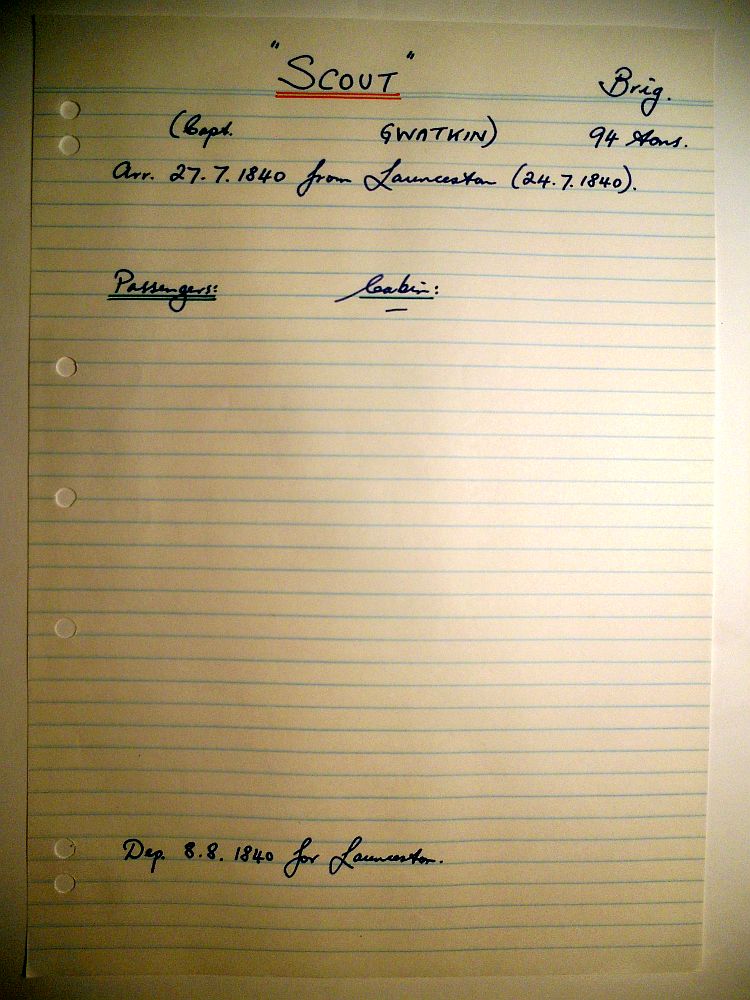 "SCOUT" Brig.
(Capt. GWATKIN) 94 tons.
Arr. 27.7.1840 from Launceston (24.7.1840).
Passengers: Cabin:
—
Dep. 8.8.1840 for Launceston.